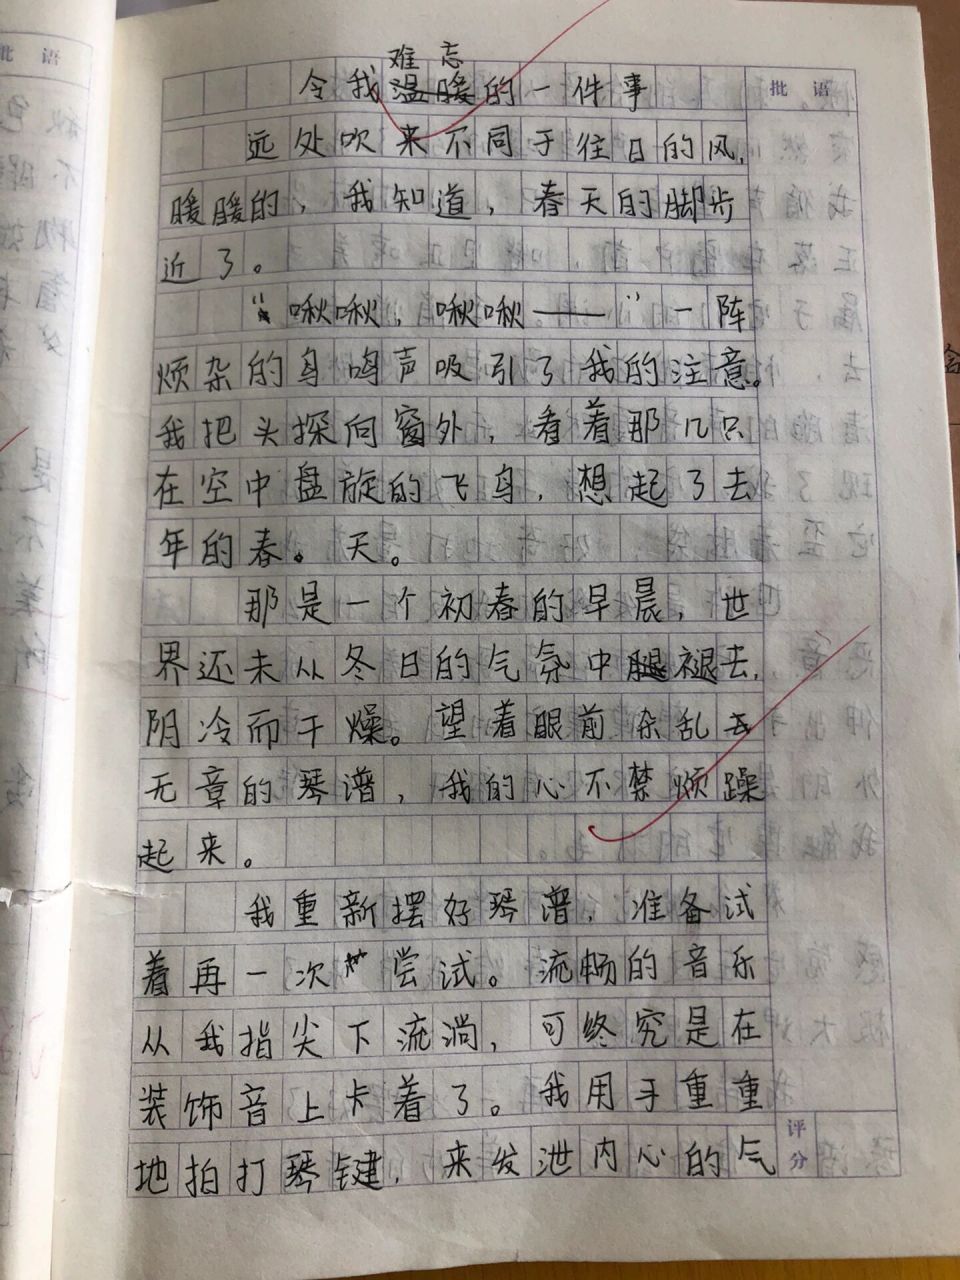 批语
令我难忘的一件事
远处吹来不同于往日的风,
暖暖的,我知道,春天的脚步
近了。
“啾啾,啾啾——” 一阵
烦杂的鸟鸣声吸引了我的注意。
我把头探向窗外,看着那几只
在空中盘旋的飞鸟,想起了去
年的春。天。
那是一个初春的早晨,世
界还未从冬日的气氛中褪去,
阴冷而干燥。望着眼前杂乱去
无章的琴谱,我的心不禁烦躁
起来。
我重新摆好琴谱,准备试
着再一次尝试。流畅的音乐
从我指尖下流淌,可终究是在
装饰音上卡着了。我用手重重
地拍打琴键,来发泄内心的气
评分
批语